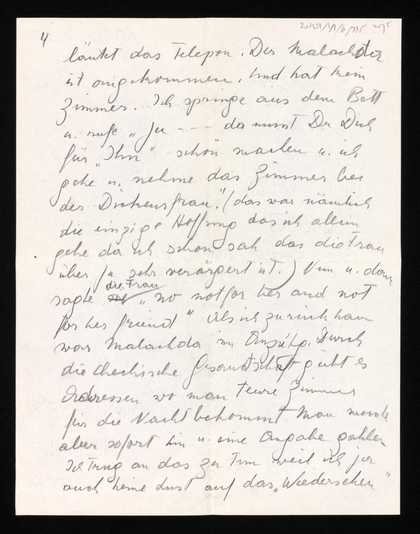 4
läutet das Telepon. Der Malach der
ist angekommen. Und hat kein
Zimmer. Ich springe aus dem Bett
u. rufe "Ja - - - da musst Du Dich
für "Ihn" schön machen u. ich
gehe u. nehme das Zimmer bei
der Dickensfrau." (das war nämlich
die einzige Hoffnung das ich allein
gehe da ich schon sah das die Frau
über ja sehr verärgert ist.) Nun u. dann
sagte die Frau "no not for her and not
for her friend" Als ich zurück kam
war Malach da im Anzüge. Durch
die chechische Gesandtschaft gibt es
Adressen wo man teure Zimmer
für die Nacht bekommt Man musste
aber sofort hin u. eine Angabe zahlen
Ich trug an das zu tun weil ich ja
auch keine Lust auf das "Wiedersehen"